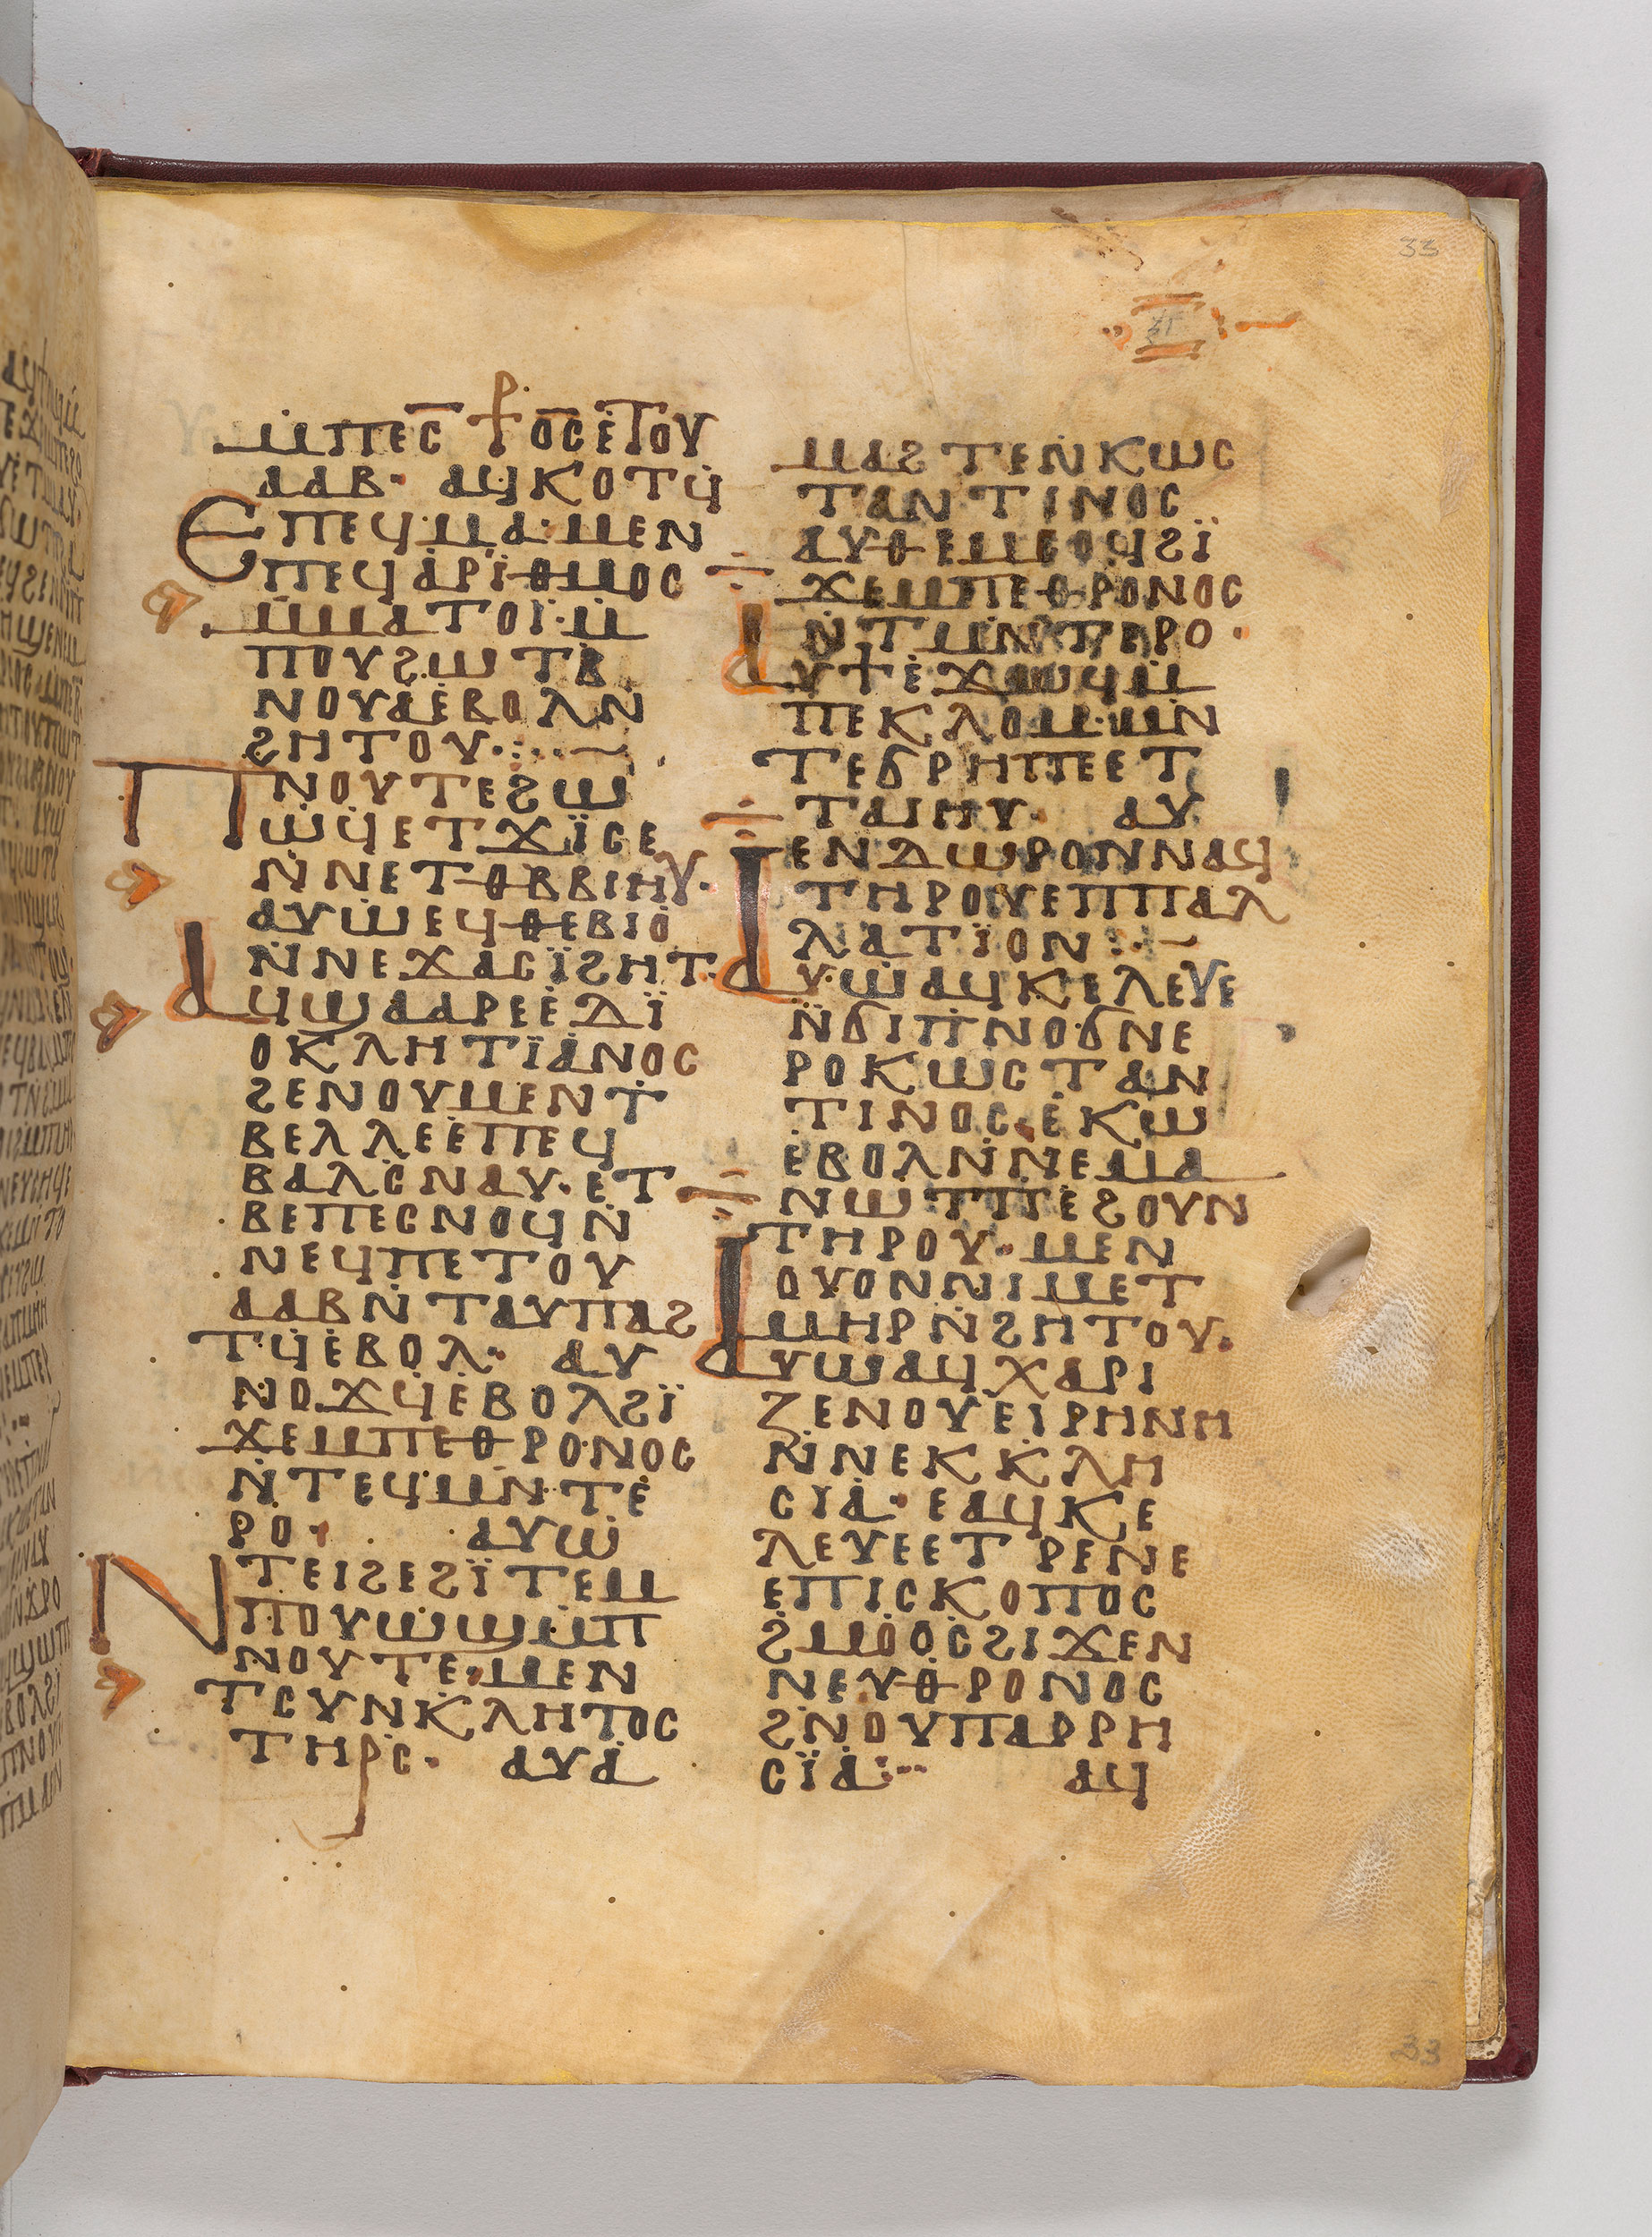 33
ⲙⲡⲉⲥ⳨ⲟⲥⲉⲧⲟⲩ
ⲁⲁⲃ· ⲁϥⲕⲟⲧϥ
ⲉⲡⲉϥⲙⲁ·ⲙⲉⲛ
ⲡⲉϥⲁⲣⲓⲑⲙⲟⲥ
ⲙⲙⲁⲧⲟⲓ·ⲙ
ⲡⲟⲩϩⲱⲧⲃ
ⲛⲟⲩⲁⲉⲃⲟⲗⲛ
ϩⲏⲧⲟⲩ·:··—
ⲡⲛⲟⲩⲧⲉϩⲱ
ⲱϥⲉⲧϫⲓ̈ⲥⲉ
ⲛⲛⲉⲧⲑⲃⲃⲓⲏⲩ·
ⲁⲩⲱⲉϥⲑⲉⲃⲓⲟ
ⲛⲛⲉϫⲁⲥⲓ̈ϩⲏⲧ·
ⲁϥϣⲁⲁⲣⲉⲉⲇⲓ̈
ⲟⲕⲗⲏⲧⲓ̈ⲁⲛⲟⲥ
ϩⲉⲛⲟⲩⲙⲉⲛⲧ
ⲃⲉⲗⲗⲉⲉⲡⲉϥ
ⲃⲁⲗⲥⲛⲁⲩ·ⲉⲧ
ⲃⲉⲡⲉⲥⲛⲟϥⲛ
ⲛⲉϥⲡⲉⲧⲟⲩ
ⲁⲁⲃⲛⲧⲁⲩⲡⲁϩ
ⲧϥⲉⲃⲟⲗ· ⲁⲩ
ⲛⲟϫϥⲉⲃⲟⲗϩⲓ̈
ϫⲉⲙⲡⲉⲑⲣⲟⲛⲟⲥ
ⲛⲧⲉϥⲙⲛⲧⲉ
ⲣⲟ· ⲁⲩⲱ
ⲛⲧⲉⲓϩⲉϩⲓ̈ⲧⲉⲙ
ⲡⲟⲩⲱϣⲙⲡ
ⲛⲟⲩⲧⲉ·ⲙⲉⲛ
ⲧⲥⲩⲛⲕⲗⲏⲧⲟⲥ
ⲧⲏⲣⲥ· ⲁⲩⲁ
ⲙⲁϩⲧⲉⲛⲕⲱⲥ
ⲧⲁⲛⲧⲓⲛⲟⲥ
ⲁⲩⲑⲉⲙⲥⲟϥϩⲓ̈
ϫⲉⲙⲡⲉⲑⲣⲟⲛⲟⲥ
ⲛⲧⲙⲛⲧⲉⲣⲟ·
ⲁⲩϯⲉϫⲱϥⲙ
ⲡⲉⲕⲗⲟⲙ·ⲙⲛ
ⲧⲉϭⲣⲏⲡⲉⲉⲧ
ⲧⲁⲓⲏⲩ· ⲁⲩ
ⲉⲛⲇⲱⲣⲟⲛⲛⲁϥ
ⲧⲏⲣⲟⲩⲉⲡⲡⲁⲗ
ⲗⲁⲧⲓ̈ⲟⲛ:·—
ⲁⲩ·ⲱⲁϥⲕⲉⲗⲉⲩⲉ
ⲛϭⲓⲡⲛⲟϭⲛⲉ
ⲣⲟⲕⲱⲥⲧⲁⲛ
ⲧⲓⲛⲟⲥ·ⲉⲕⲱ
ⲉⲃⲟⲗⲛⲛⲉⲙⲁ
ⲛⲱⲧⲡⲉϩⲟⲩⲛ
ⲧⲏⲣⲟⲩ·ⲙⲉⲛ
ⲟⲩⲟⲛⲛⲓⲙⲉⲧ
ⲙⲏⲣⲛϩⲏⲧⲟⲩ·
ⲁⲩⲱⲁϥⲭⲁⲣⲓ
ⲍⲉⲛⲟⲩⲉⲓⲣⲏⲛⲏ
ⲛⲛⲉⲕⲕⲗⲏ
ⲥⲓⲁ· ⲉⲁϥⲕⲉ
ⲗⲉⲩⲉⲉⲧⲣⲉⲛⲉ
ⲉⲡⲓⲥⲕⲟⲡⲟⲥ
ϩⲙⲟⲟⲥϩⲓϫⲉⲛ
ⲛⲉⲩⲑⲣⲟⲛⲟⲥ
ϩⲛⲟⲩⲡⲁⲣⲣⲏ
ⲥⲓ̈ⲁ:·· ⲁϥ
33